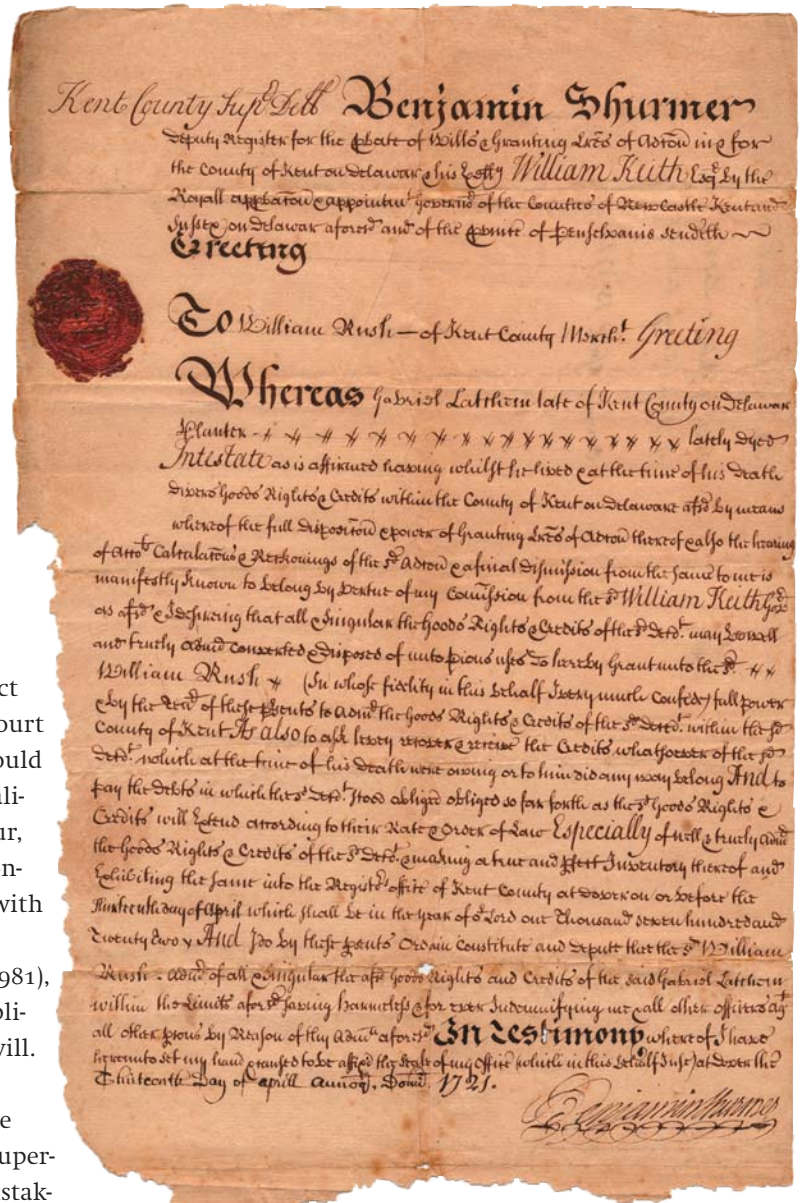 Kent County Supr Dell Benjamin Shurmer
Deputy Register for the Pbate of Wills & Granting Lres of Admon in & for
the County of Kent on Delaware & his Excy William Keith Esqr. By the
Royall appbation & appointmt Governr of the Counties of New Castle Kent and
Sussex on Delawar aforesd and of the Pvince of Pensilvania sendeth
Greeting
To William Rush — of Kent County Mercht. Greeting
Whereas Gabriel Latchem late of Kent County on Delawar
Planter lately dyed
Intestate as is affirmed having whilst he lived & at the time of his Death
divers Goods Rights & Credits within the County of Kent on Delaware afsd by means
whereof the full disposicon & power of Granting Lres of Admon thereof & also the hearing
of Calculacons & Reckonings of the sd Admon & a final dismission from the same to me is
manifestly known to belong by vertue of my Comission from the sd William Keith Govr
as afsd & I desireing that all & singular the Goods Rights & Credits of the sd Decd. may be well
and truely admd converted & disposed of unto pious uses Do hereby Grant unto the sd.
William Rush (In whose fidelity in this behalf I very much Confide) full power
& by the of these Psents to Admr the Goods Rights & Credits of the sd Decd. within the sd
County of Kent As also to ask levey recover & receive the Credits whatsoever of the sd
Decd. which at the time of his Death were owing or to him did any way belong And to
pay the Debts in which the sd Decd. stood obliged obliged so far forth as the sd Goods Rights &
Credits will Extend according to their Rate & Order of Law Especially of well & truely Admr
the Goods Rights & Credits of the sd Decd. & making a true and Pfect Inventory thereof and
Exhibiting the same into the Registrs office of Kent County at Dover on or before the
thirteenth day of April which shall be in the year of or Lord one Thousand seven hundred and
Twenty two & And I do by these psents Ordain Constitute and depute thee the sd William
Rush. Admr of all & singular the afsd Goods Rights and Credits of the said Gabriel Latchem
within the Limits aforesd saving harmless & for ever Indemnifying me & all other officers agt
all other psons by Reason of thy Admn aforesd In Testimony whereof I have
hereunto set my hand & caused to be affixed the seale of my Office (which in this behalf I use) at Dover the
Thirteenth Day of Aprill Annoq. Domi. 1721.
Benjamin Shurmer
ct
ourt
ould
ali-
ur,
on-
with
981),
bli-
will.
e
uper-
stak-